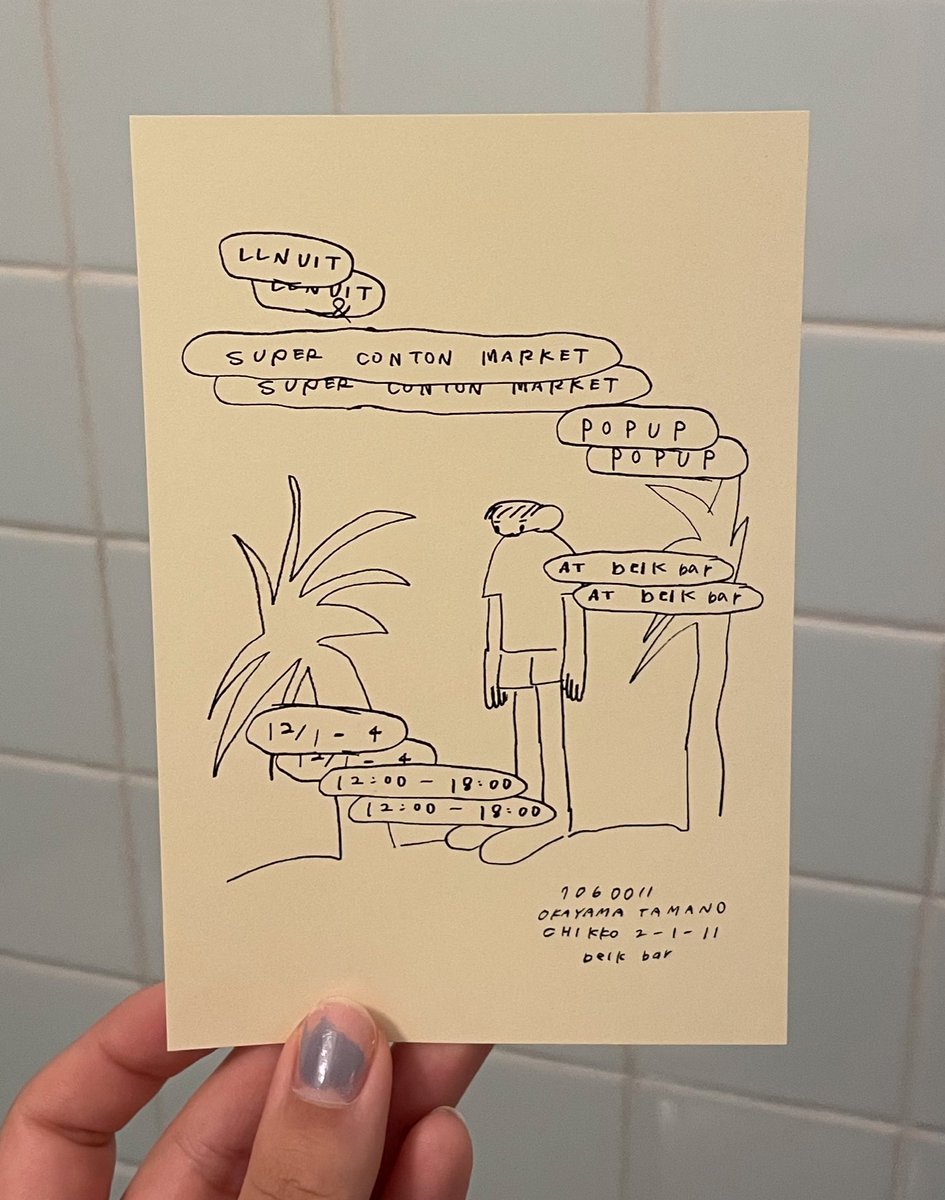 LLNUIT
LLNUIT
&
SUPER CONTON MARKET
SUPER CONTON MARKET
POPUP
POPUP
AT belk bar
AT belk bar
12/1 - 4
12/1 - 4
12:00 - 18:00
12:00 - 18:00
7060011
OKAYAMA TAMANO
CHIKKO 2-1-11
belk bar